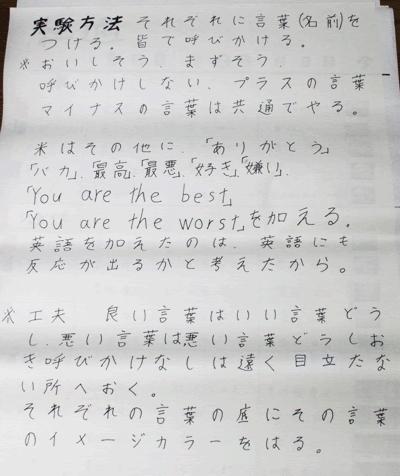 実験方法 それぞれに言葉(名前)を
つける。皆で呼びかける。
※おいしそう、まずそう
呼びかけしない、プラスの言葉
マイナスの言葉は共通でやる。
米はその他に、「ありがとう」
「バカ」、「最高」、「最悪」、「好き」、「嫌い」、
「You are the best」
「You are the worst」を加える。
英語を加えたのは、英語にも
反応が出るかと考えたから。
※工夫 良い言葉はいい言葉どう
し、悪い言葉は悪い言葉どうしお
き呼びかけなしは遠く目立たな
い所へおく。
それぞれの言葉の底にその言葉
のイメージカラーをはる。